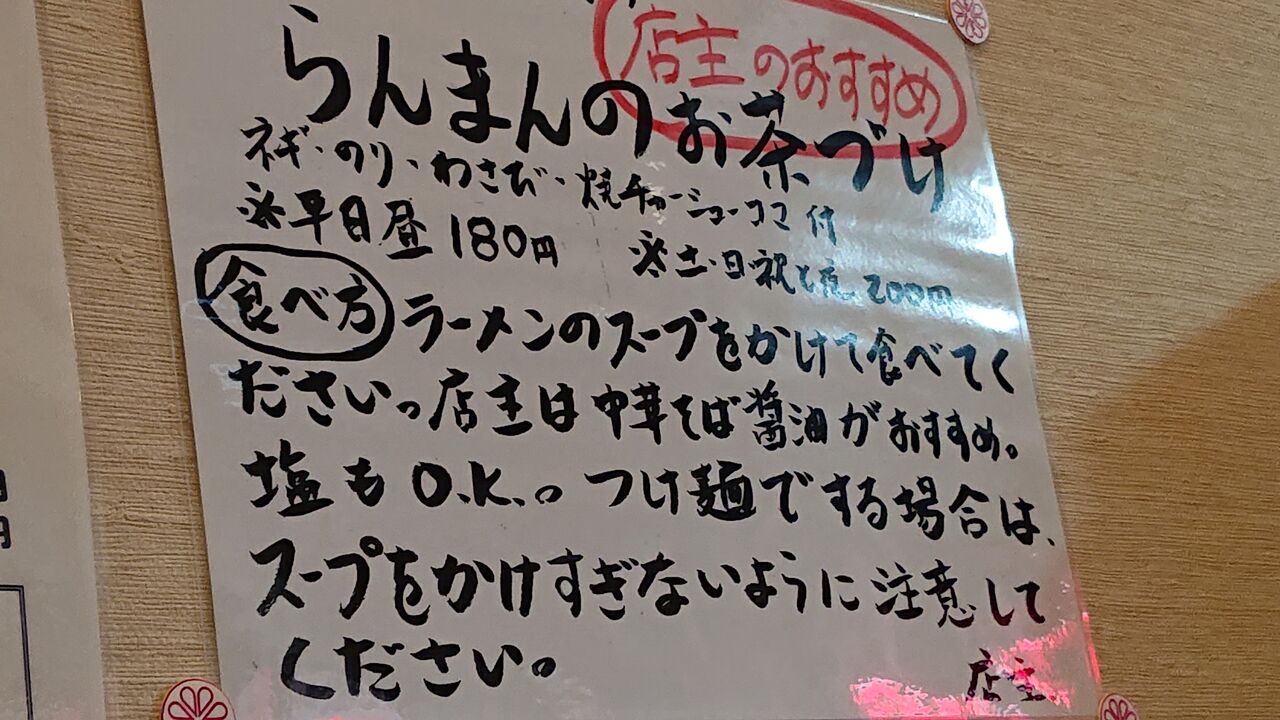 店主のおすすめ
らんまんのお茶づけ
ネギ・のり・わさび・焼チャーシューコマ付
※平日昼180円 ※土・日・祝と夜200円
食べ方 ラーメンのスープをかけて食べてく
ださいっ店主は中華そば醤油がおすすめ。
塩もO.K.。つけ麺でする場合は、
スープをかけすぎないように注意して
ください。
店主
円